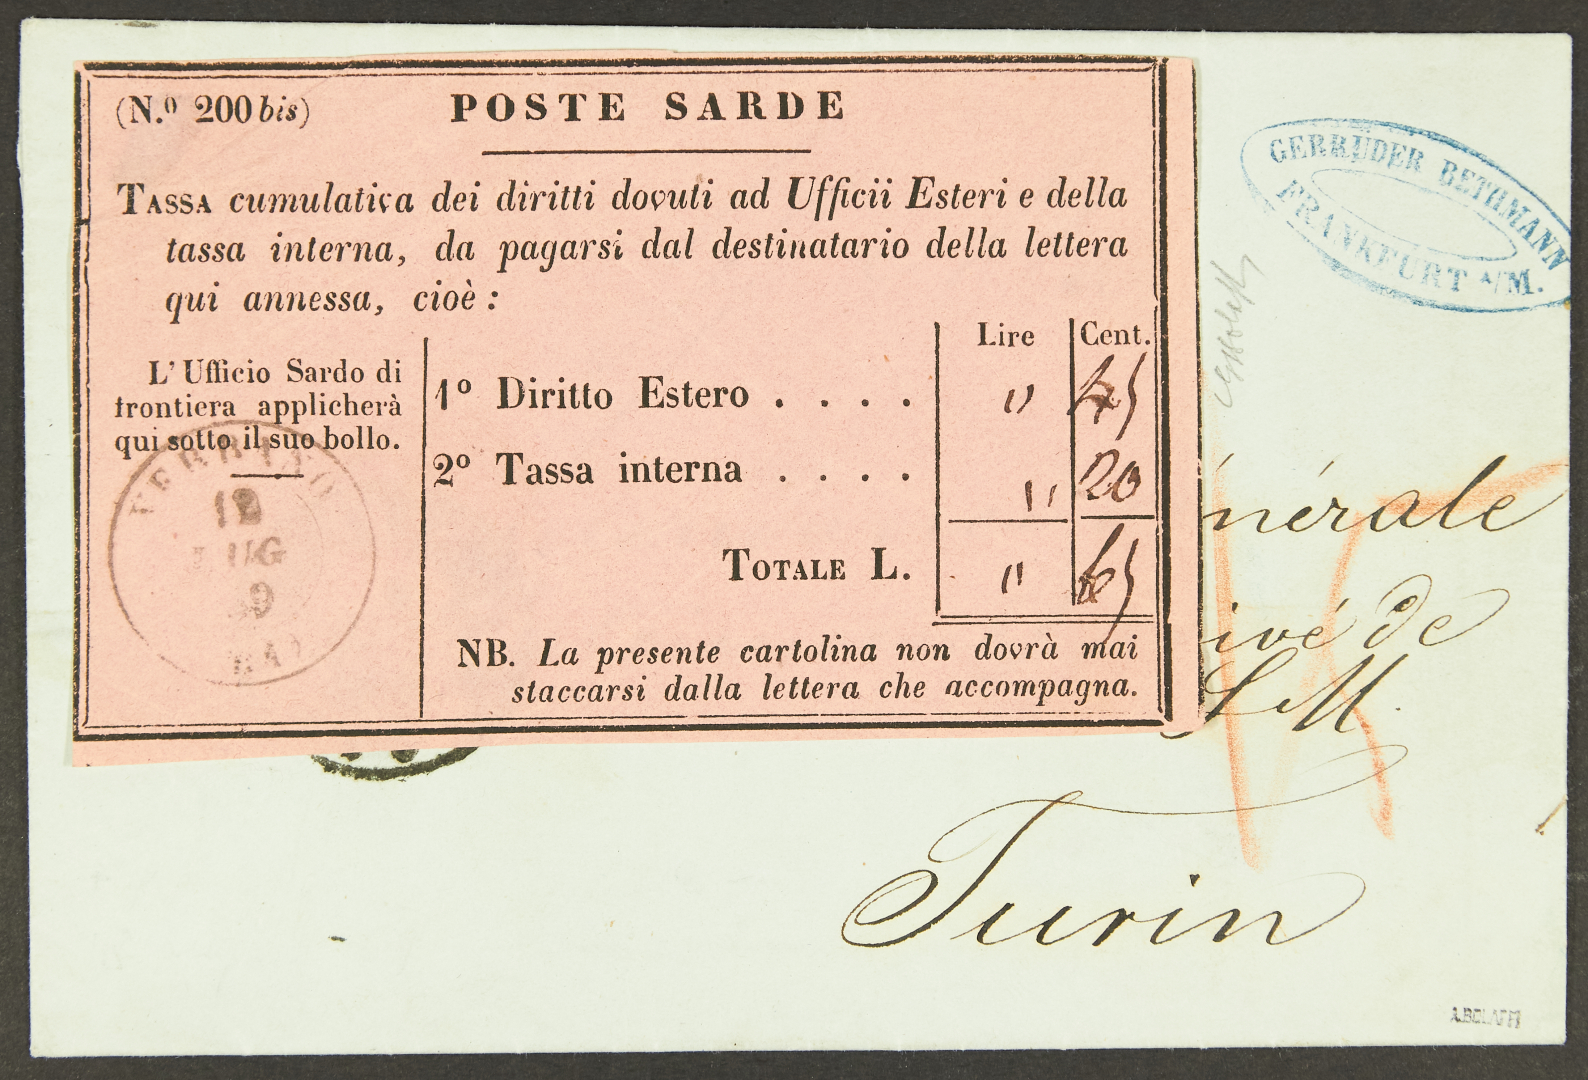 (N.º 200 bis) POSTE SARDE
TASSA cumulativa dei diritti dovuti ad Ufficii Esteri e della
tassa interna, da pagarsi dal destinatario della lettera
qui annessa, cioè :
Lire Cent.
L'Ufficio Sardo di
frontiera applicherà
qui sotto il suo bollo.
1º Diritto Estero . . . . " 45
2º Tassa interna . . . . " 20
TOTALE L. " 65
NB. La presente cartolina non dovrà mai
staccarsi dalla lettera che accompagna.
12
LUG
GEBRÜDER BETHMANN
FRANKFURT A/M.
nérale
ivé de
S. M.
Turin
A.BOLAFFI